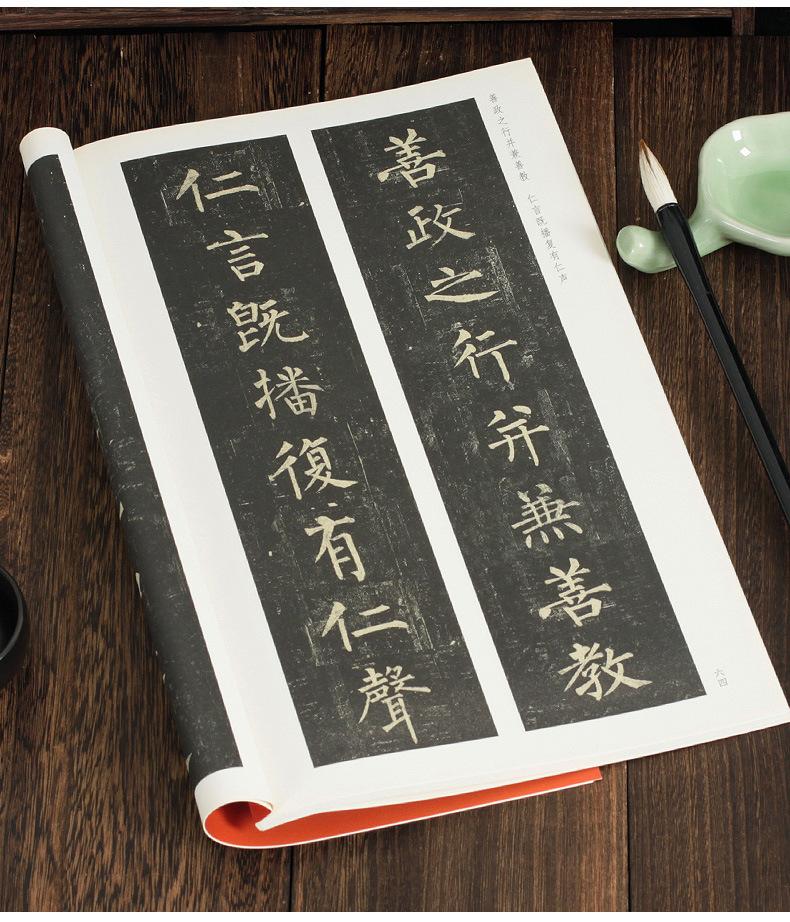 善政之行并兼善教　仁言既播复有仁声
善政之行并兼善教
仁言既播復有仁聲
六四